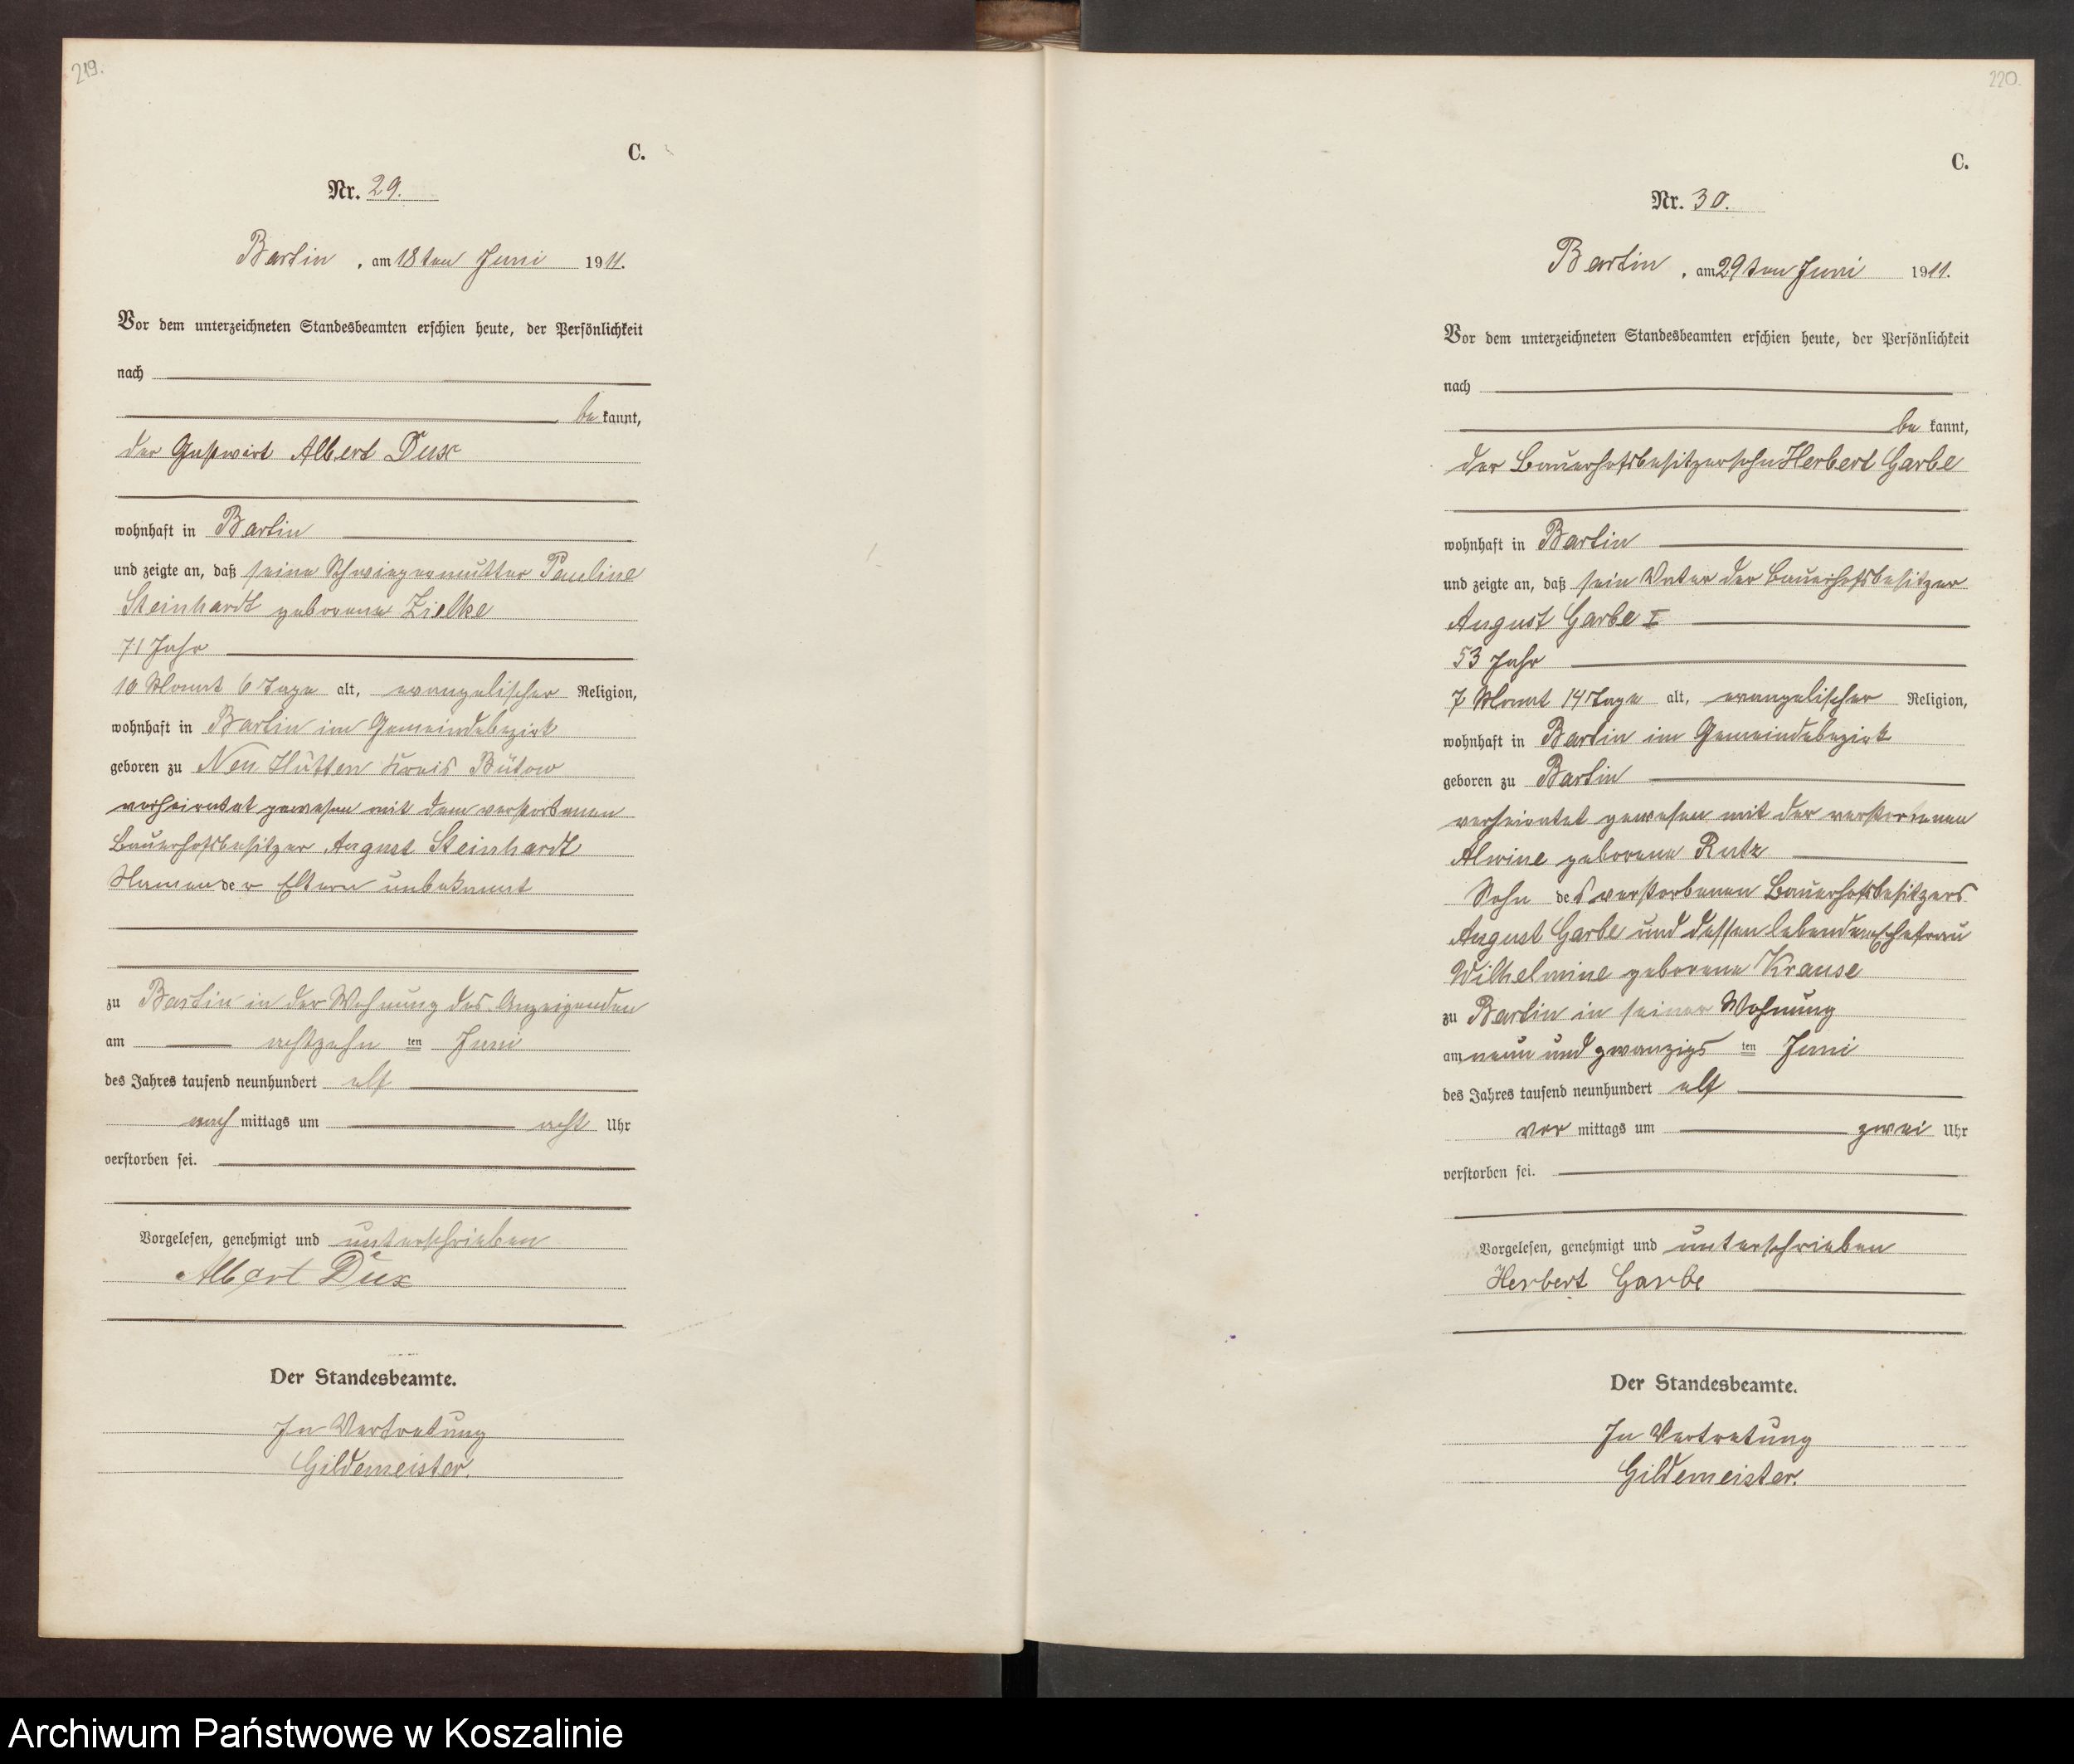 219.
C.
Nr. 29.
Bartin, am 18ten Juni 1911.
Vor dem unterzeichneten Standesbeamten erschien heute, der Persönlichkeit
nach
bekannt,
der Gastwirt Albert Dux
wohnhaft in Bartin
und zeigte an, daß seine Schwiegermutter Pauline
Steinhardt geborene Zielke
71 Jahr
10 Monat 6 Tage alt, evangelischer Religion,
wohnhaft in Bartin im Gemeindebezirk
geboren zu Neu Hütten Kreis Bütow
verheiratet gewesen mit dem verstorbenen
Bauerhofsbesitzer August Steinhardt
Namen der Eltern unbekannt
zu Bartin in der Wohnung des Anzeigenden
am achtzehn ten Juni
des Jahres tausend neunhundert elf
nach mittags um acht Uhr
verstorben sei.
Vorgelesen, genehmigt und unterschrieben
Albert Dux
Der Standesbeamte.
In Vertretung
Gildemeister.
220.
C.
Nr. 30.
Bartin, am 29ten Juni 1911.
Vor dem unterzeichneten Standesbeamten erschien heute, der Persönlichkeit
nach
bekannt,
der Bauerhofsbesitzersohn Herbert Garbe
wohnhaft in Bartin
und zeigte an, daß sein Vater der Bauerhofsbesitzer
August Garbe I
53 Jahr
7 Monat 14 Tage alt, evangelischer Religion,
wohnhaft in Bartin im Gemeindebezirk
geboren zu Bartin
verheiratet gewesen mit der verstorbenen
Alwine geborene Rutz
Sohn des verstorbenen Bauerhofsbesitzers
August Garbe und dessen lebenden Ehefrau
Wilhelmine geborene Krause
zu Bartin in seiner Wohnung
am neun und zwanzigs ten Juni
des Jahres tausend neunhundert elf
vor mittags um zwei Uhr
verstorben sei.
Vorgelesen, genehmigt und unterschrieben
Herbert Garbe
Der Standesbeamte.
In Vertretung
Gildemeister.
Archiwum Państwowe w Koszalinie